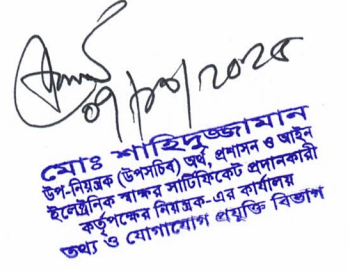 ০৭/৮/২০২৫
মোঃ শাহিদুজ্জামান
উপ-নিয়ন্ত্রক (উপসচিব) অর্থ, প্রশাসন ও আইন
ইলেক্ট্রনিক স্বাক্ষর সার্টিফিকেট প্রদানকারী
কর্তৃপক্ষের নিয়ন্ত্রক-এর কার্যালয়
তথ্য ও যোগাযোগ প্রযুক্তি বিভাগ